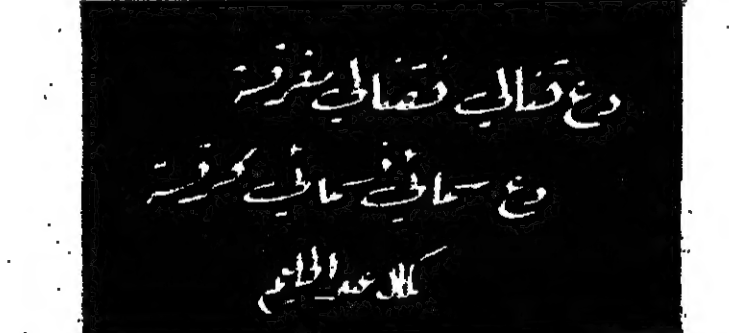 دع قنالي فقنالي مغرقة
دع سمائي فسمائي محرقة
كمال عبد الحليم